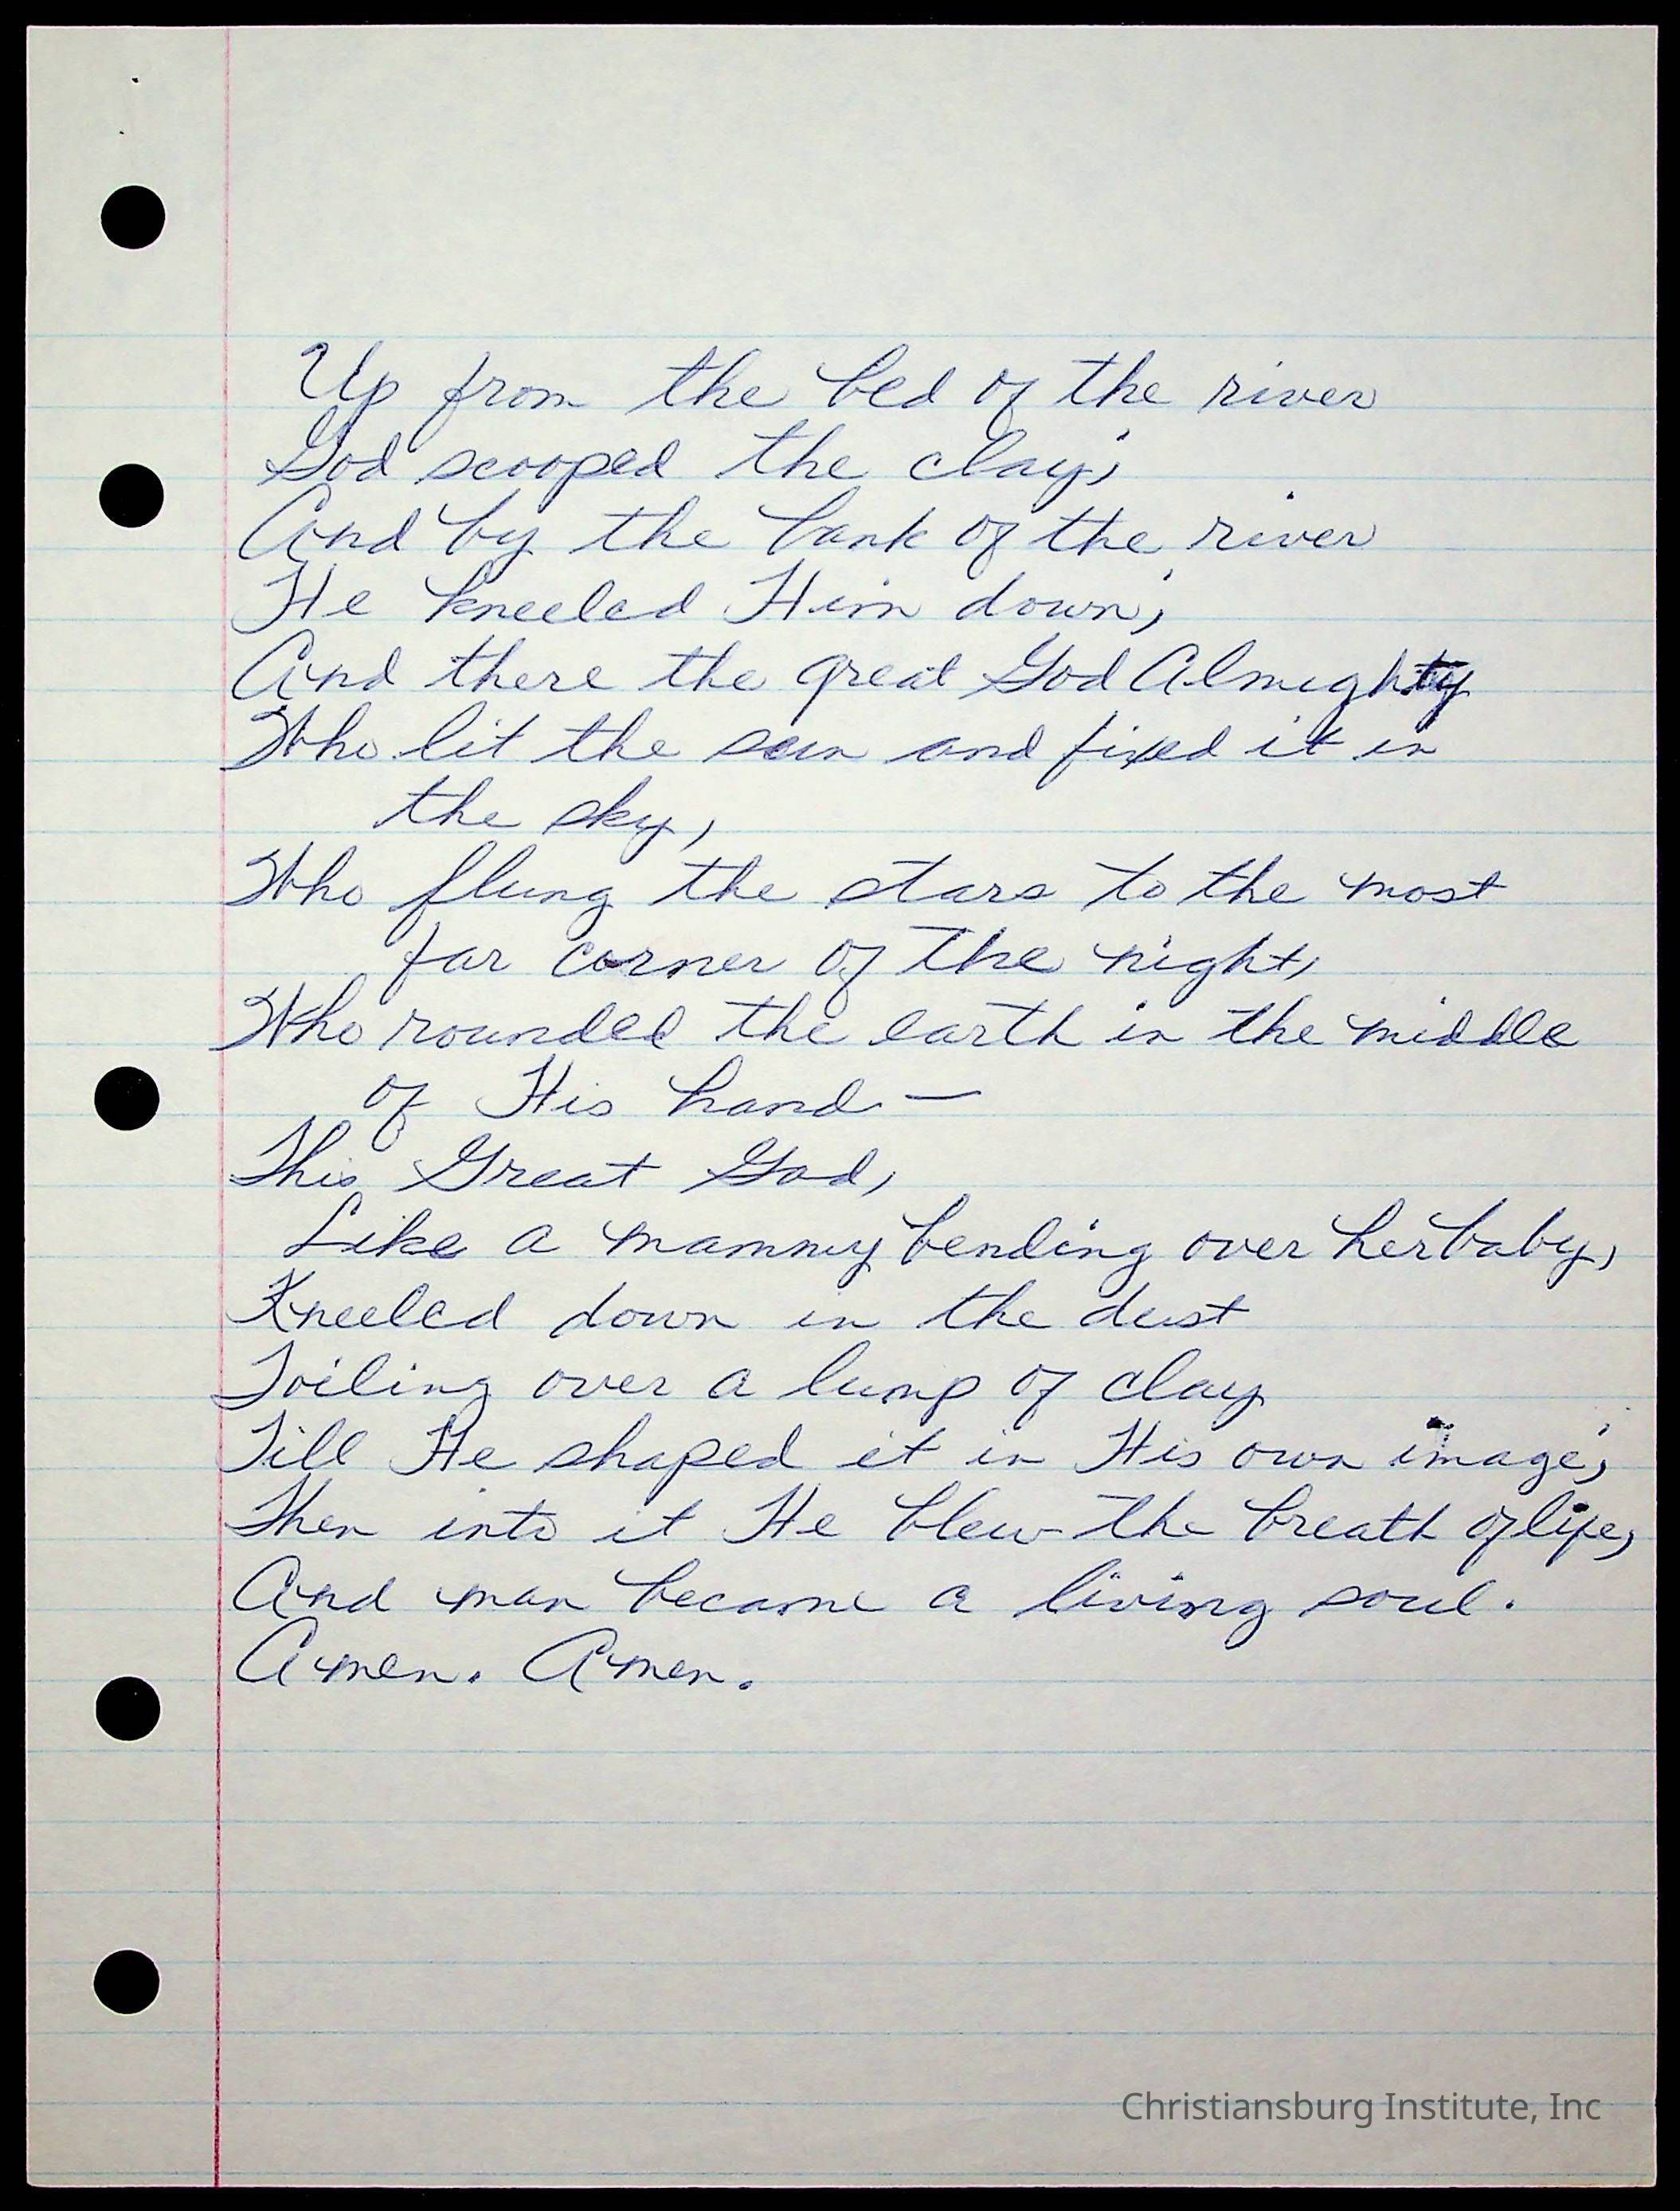 Up from the bed of the river
God scooped the clay;
And by the bank of the river
He kneeled Him down;
And there the great God Almighty
Who lit the sun and fixed it in
the sky,
Who flung the stars to the most
far corner of the night,
Who rounded the earth in the middle
of His hand —
This Great God,
Like a mammy bending over her baby,
Kneeled down in the dust
Toiling over a lump of clay
Till He shaped it in His own image;
Then into it He blew the breath of life,
And man became a living soul.
Amen. Amen.
Christiansburg Institute, Inc